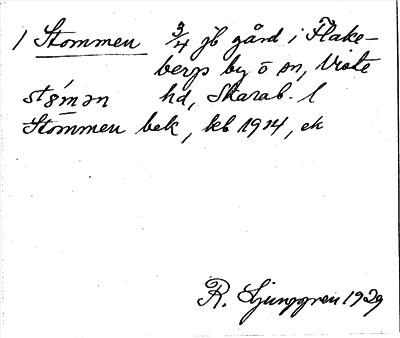 1 Stommen 3/4 jb gård i Flake-
bergs by o sn, Viste
hd, Skarab. l
Stommen bek, kb 1914, ek
R. Ljunggren 1929